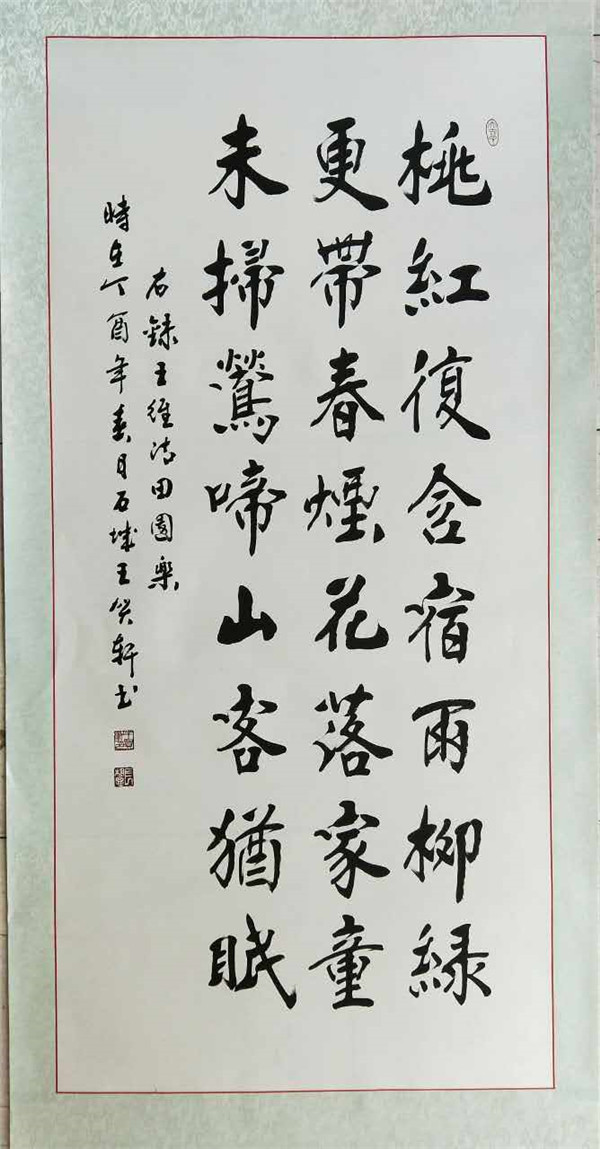 桃紅復含宿雨柳綠
更帶春煙花落家童
未掃鶯啼山客猶眠
右錄王維詩田園樂
時在丁酉年春月石城王癸軒書